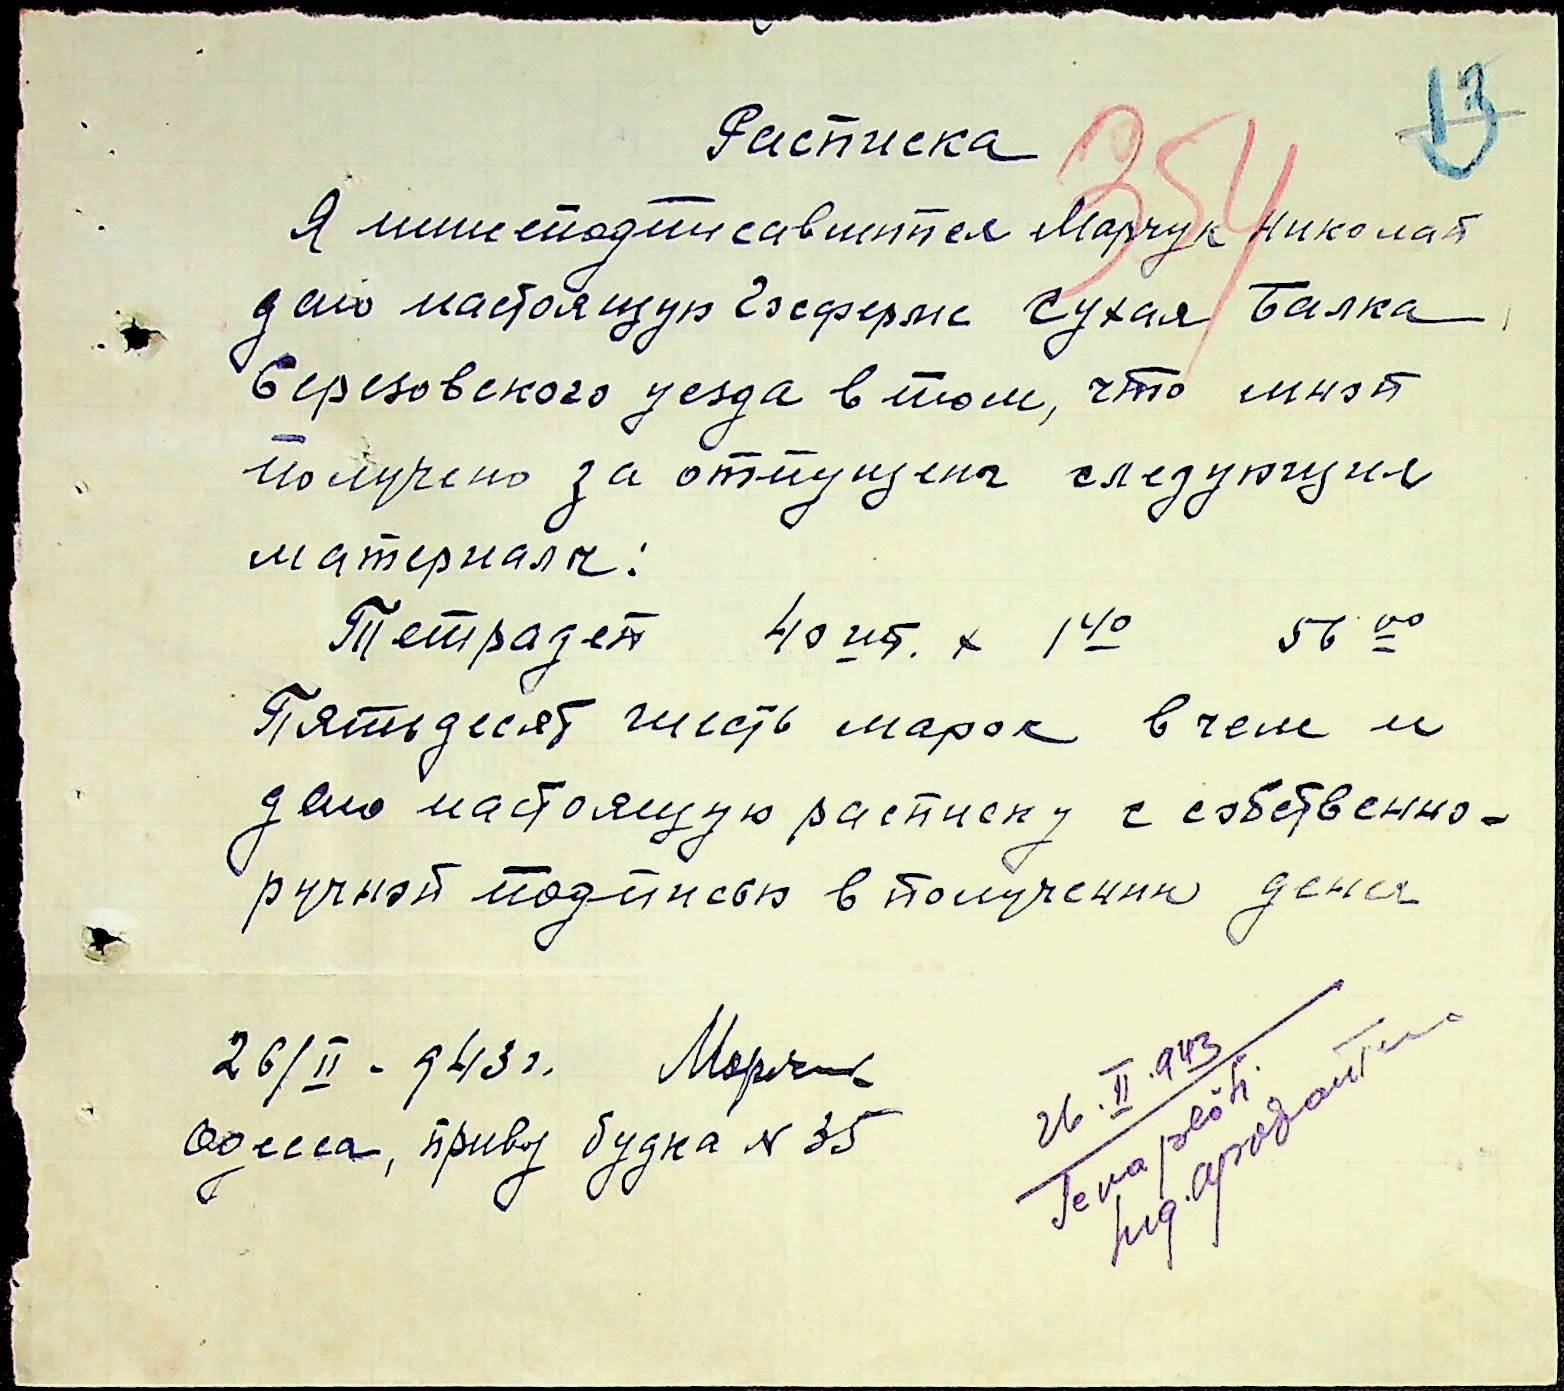 13
354
Расписка
Я нинеподписавшийся Марчук Николай
даю настоящую Госферме Сухая Балка
Березовского уезда в том, что мной
получено за отпущены следующие
материалы:
Тетрадей 40 шт. x 1 40 56 00
Пятьдесят шесть марок в чем и
даю настоящую расписку с собственно-
ручной подписью в получении денег
26/II - 943 г. Марчук
Одесса, привоз будка N 35
26.II.943
Se va plăti.
Ing.